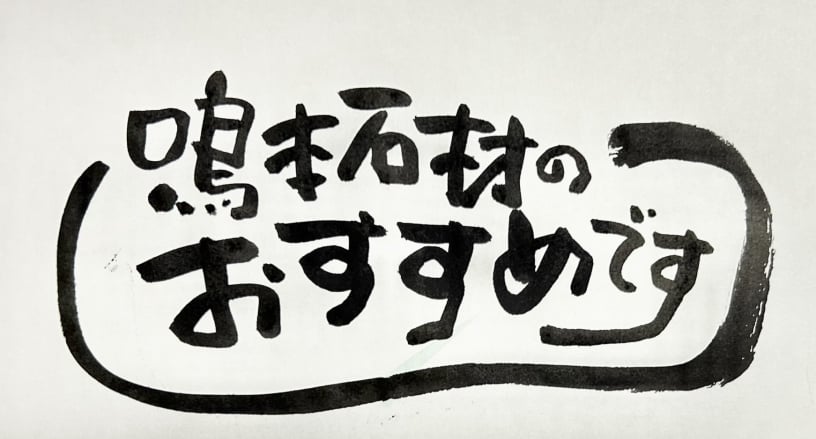 鳴本石材の
おすすめです